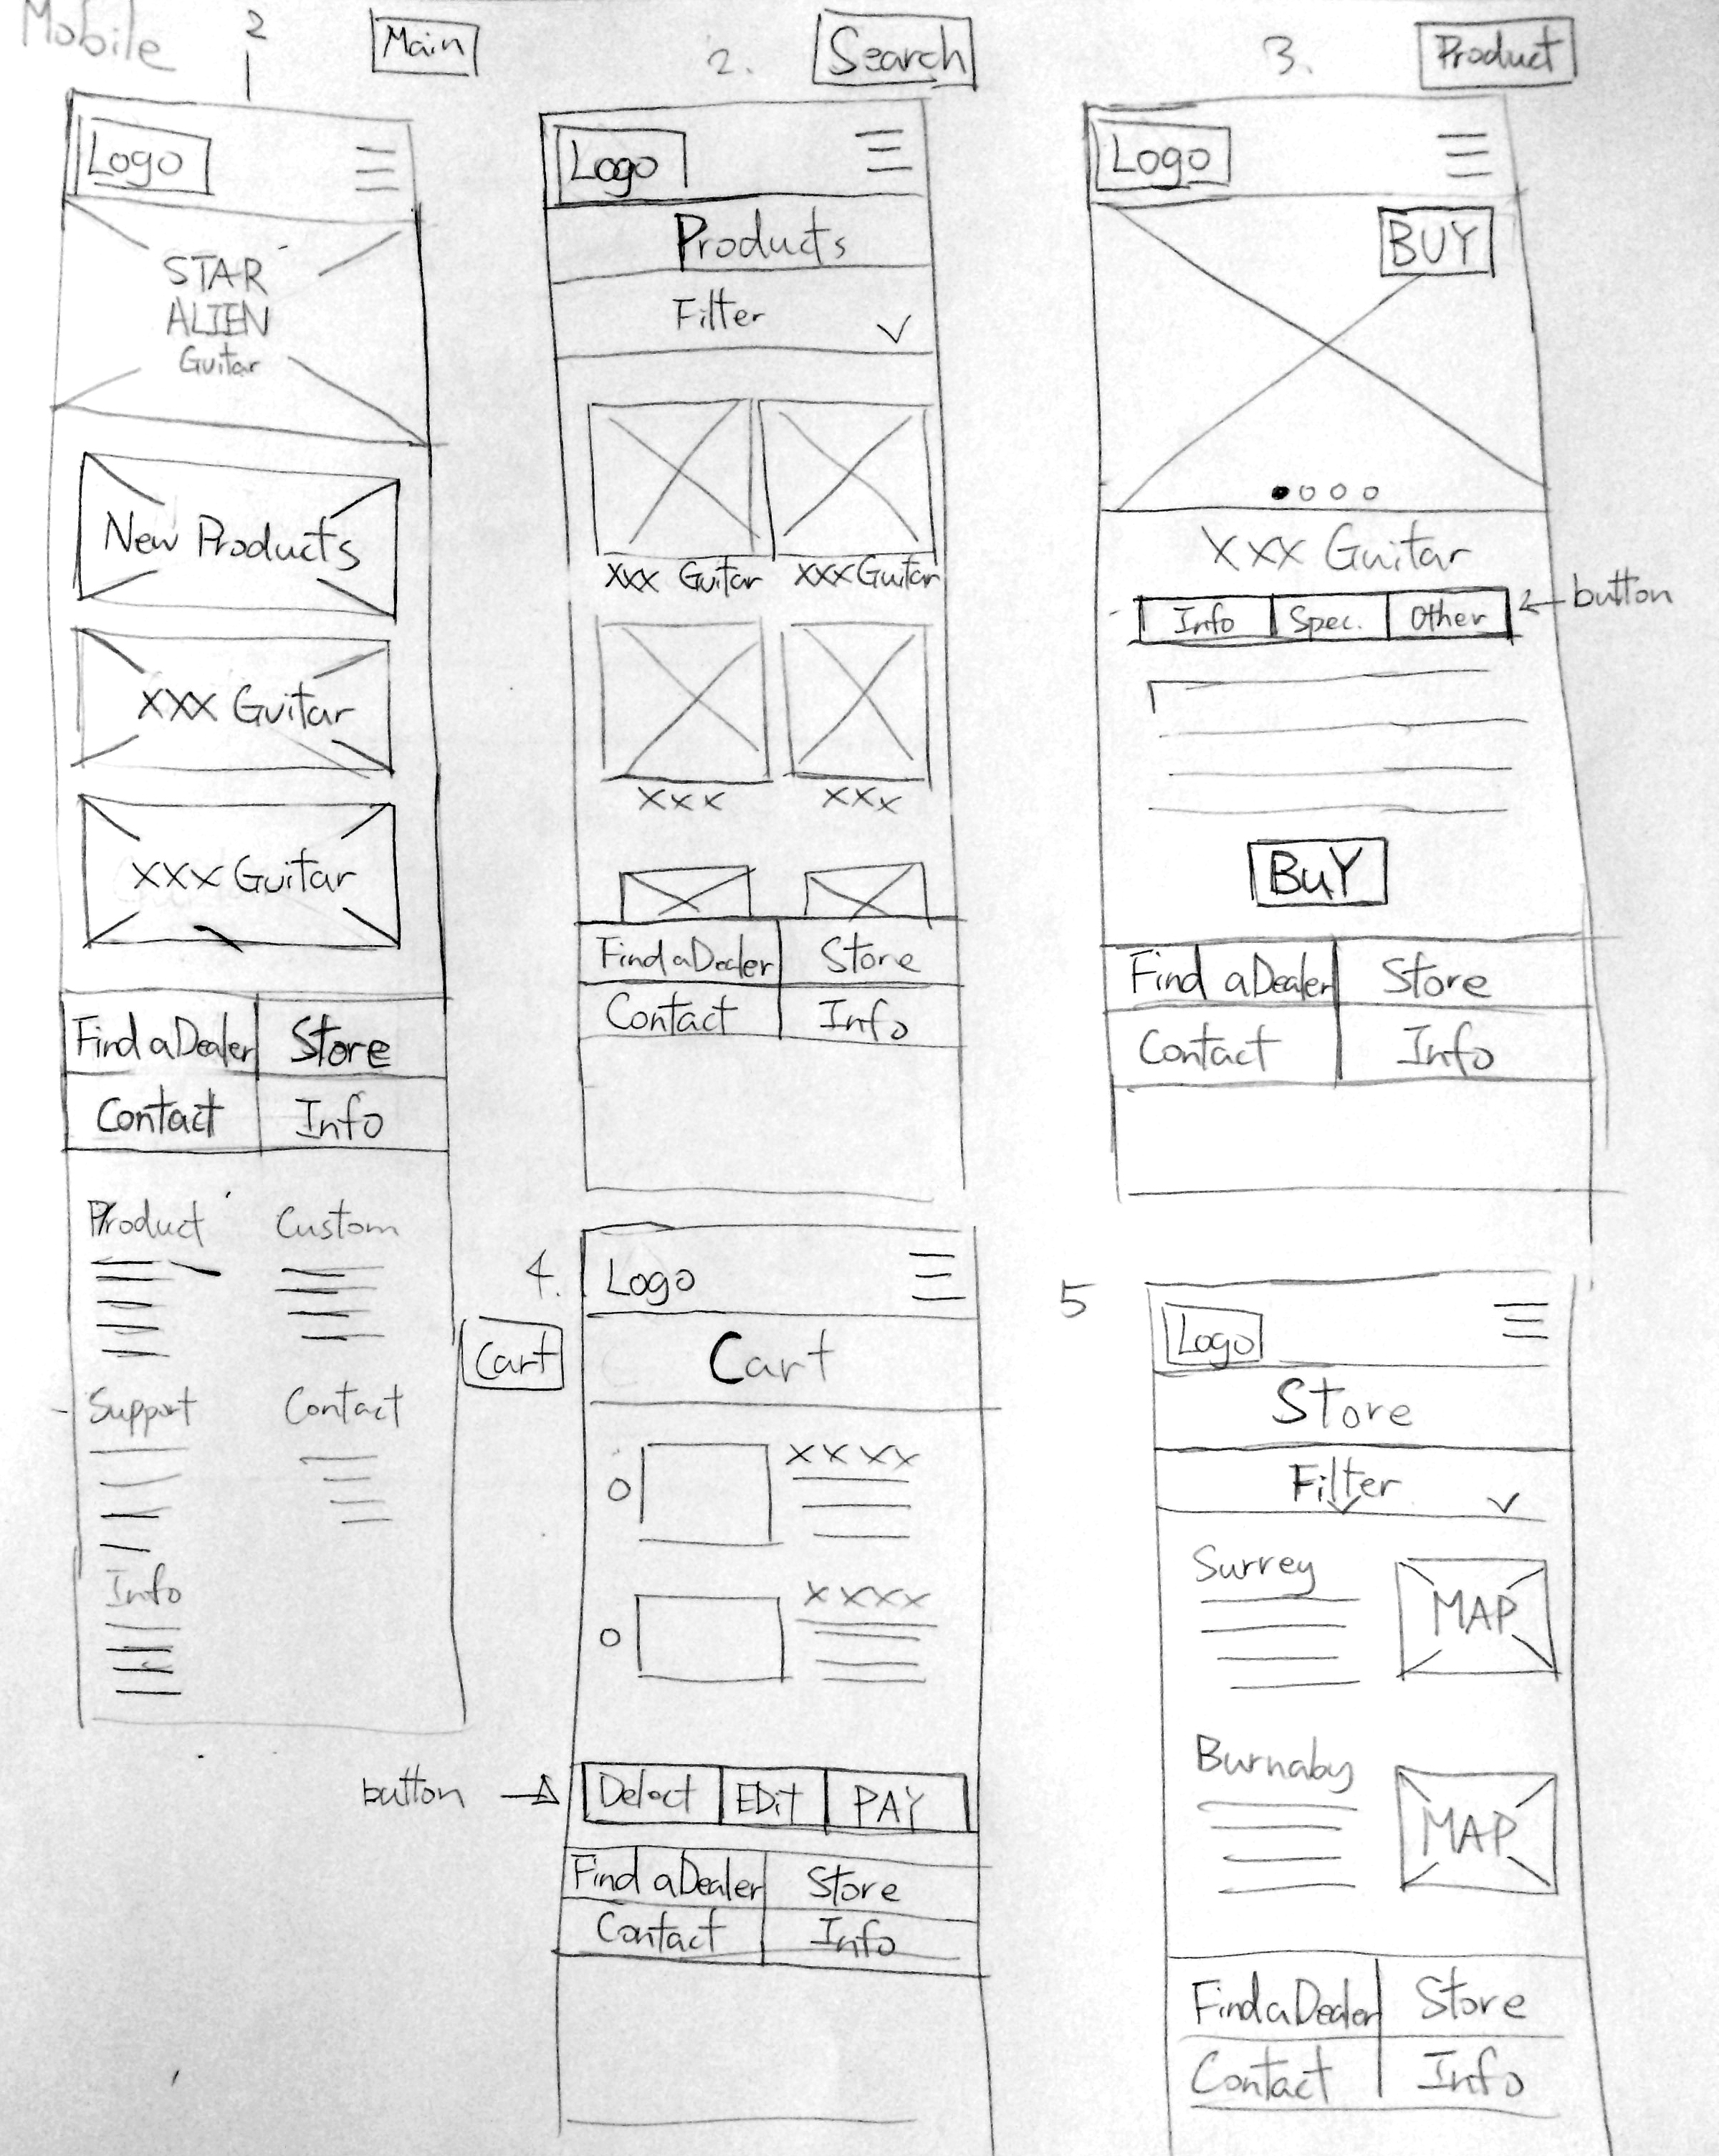 Mobile
2
Main
Logo
STAR
ALIEN
Guitar
New Products
XXX Guitar
XXX Guitar
Find a Dealer Store
Contact Info
Product Custom
Support Contact
Info
2. Search
Logo
Products
Filter
XXX Guitar XXX Guitar
XXX XXX
Find a Dealer Store
Contact Info
3. Product
Logo
BUY
XXX Guitar
Info Spec. Other
button
BUY
Find a Dealer Store
Contact Info
4.
Cart
Logo
Cart
XXXX
XXXX
button
Delect EDit PAY
Find a Dealer Store
Contact Info
5
Logo
Store
Filter
Surrey
MAP
Burnaby
MAP
Find a Dealer Store
Contact Info